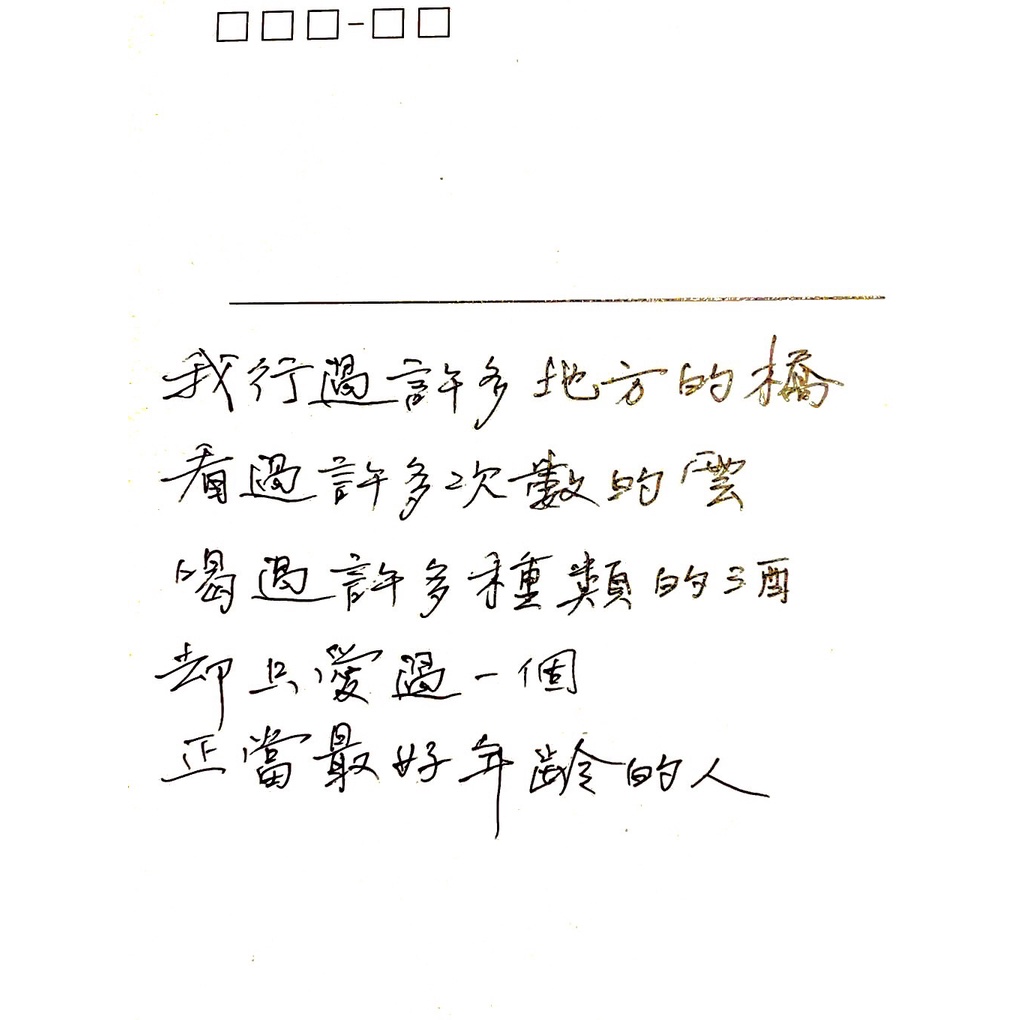 我行過許多地方的橋
看過許多次數的雲
喝過許多種類的酒
却只愛過一個
正當最好年齡的人